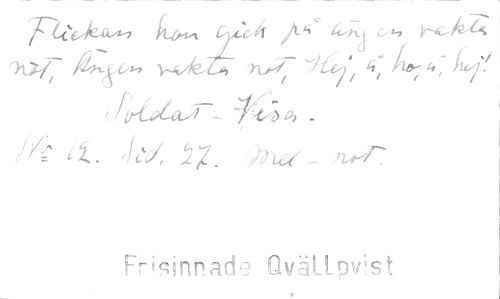 Flickan hon gick på ängen vakta
nöt, Ängen vakta nöt, Hej, å, ho, å, hej!
Soldat-Visa.
No 12. Sid. 27. Mel-not.
Frisinnade QvälLpvist